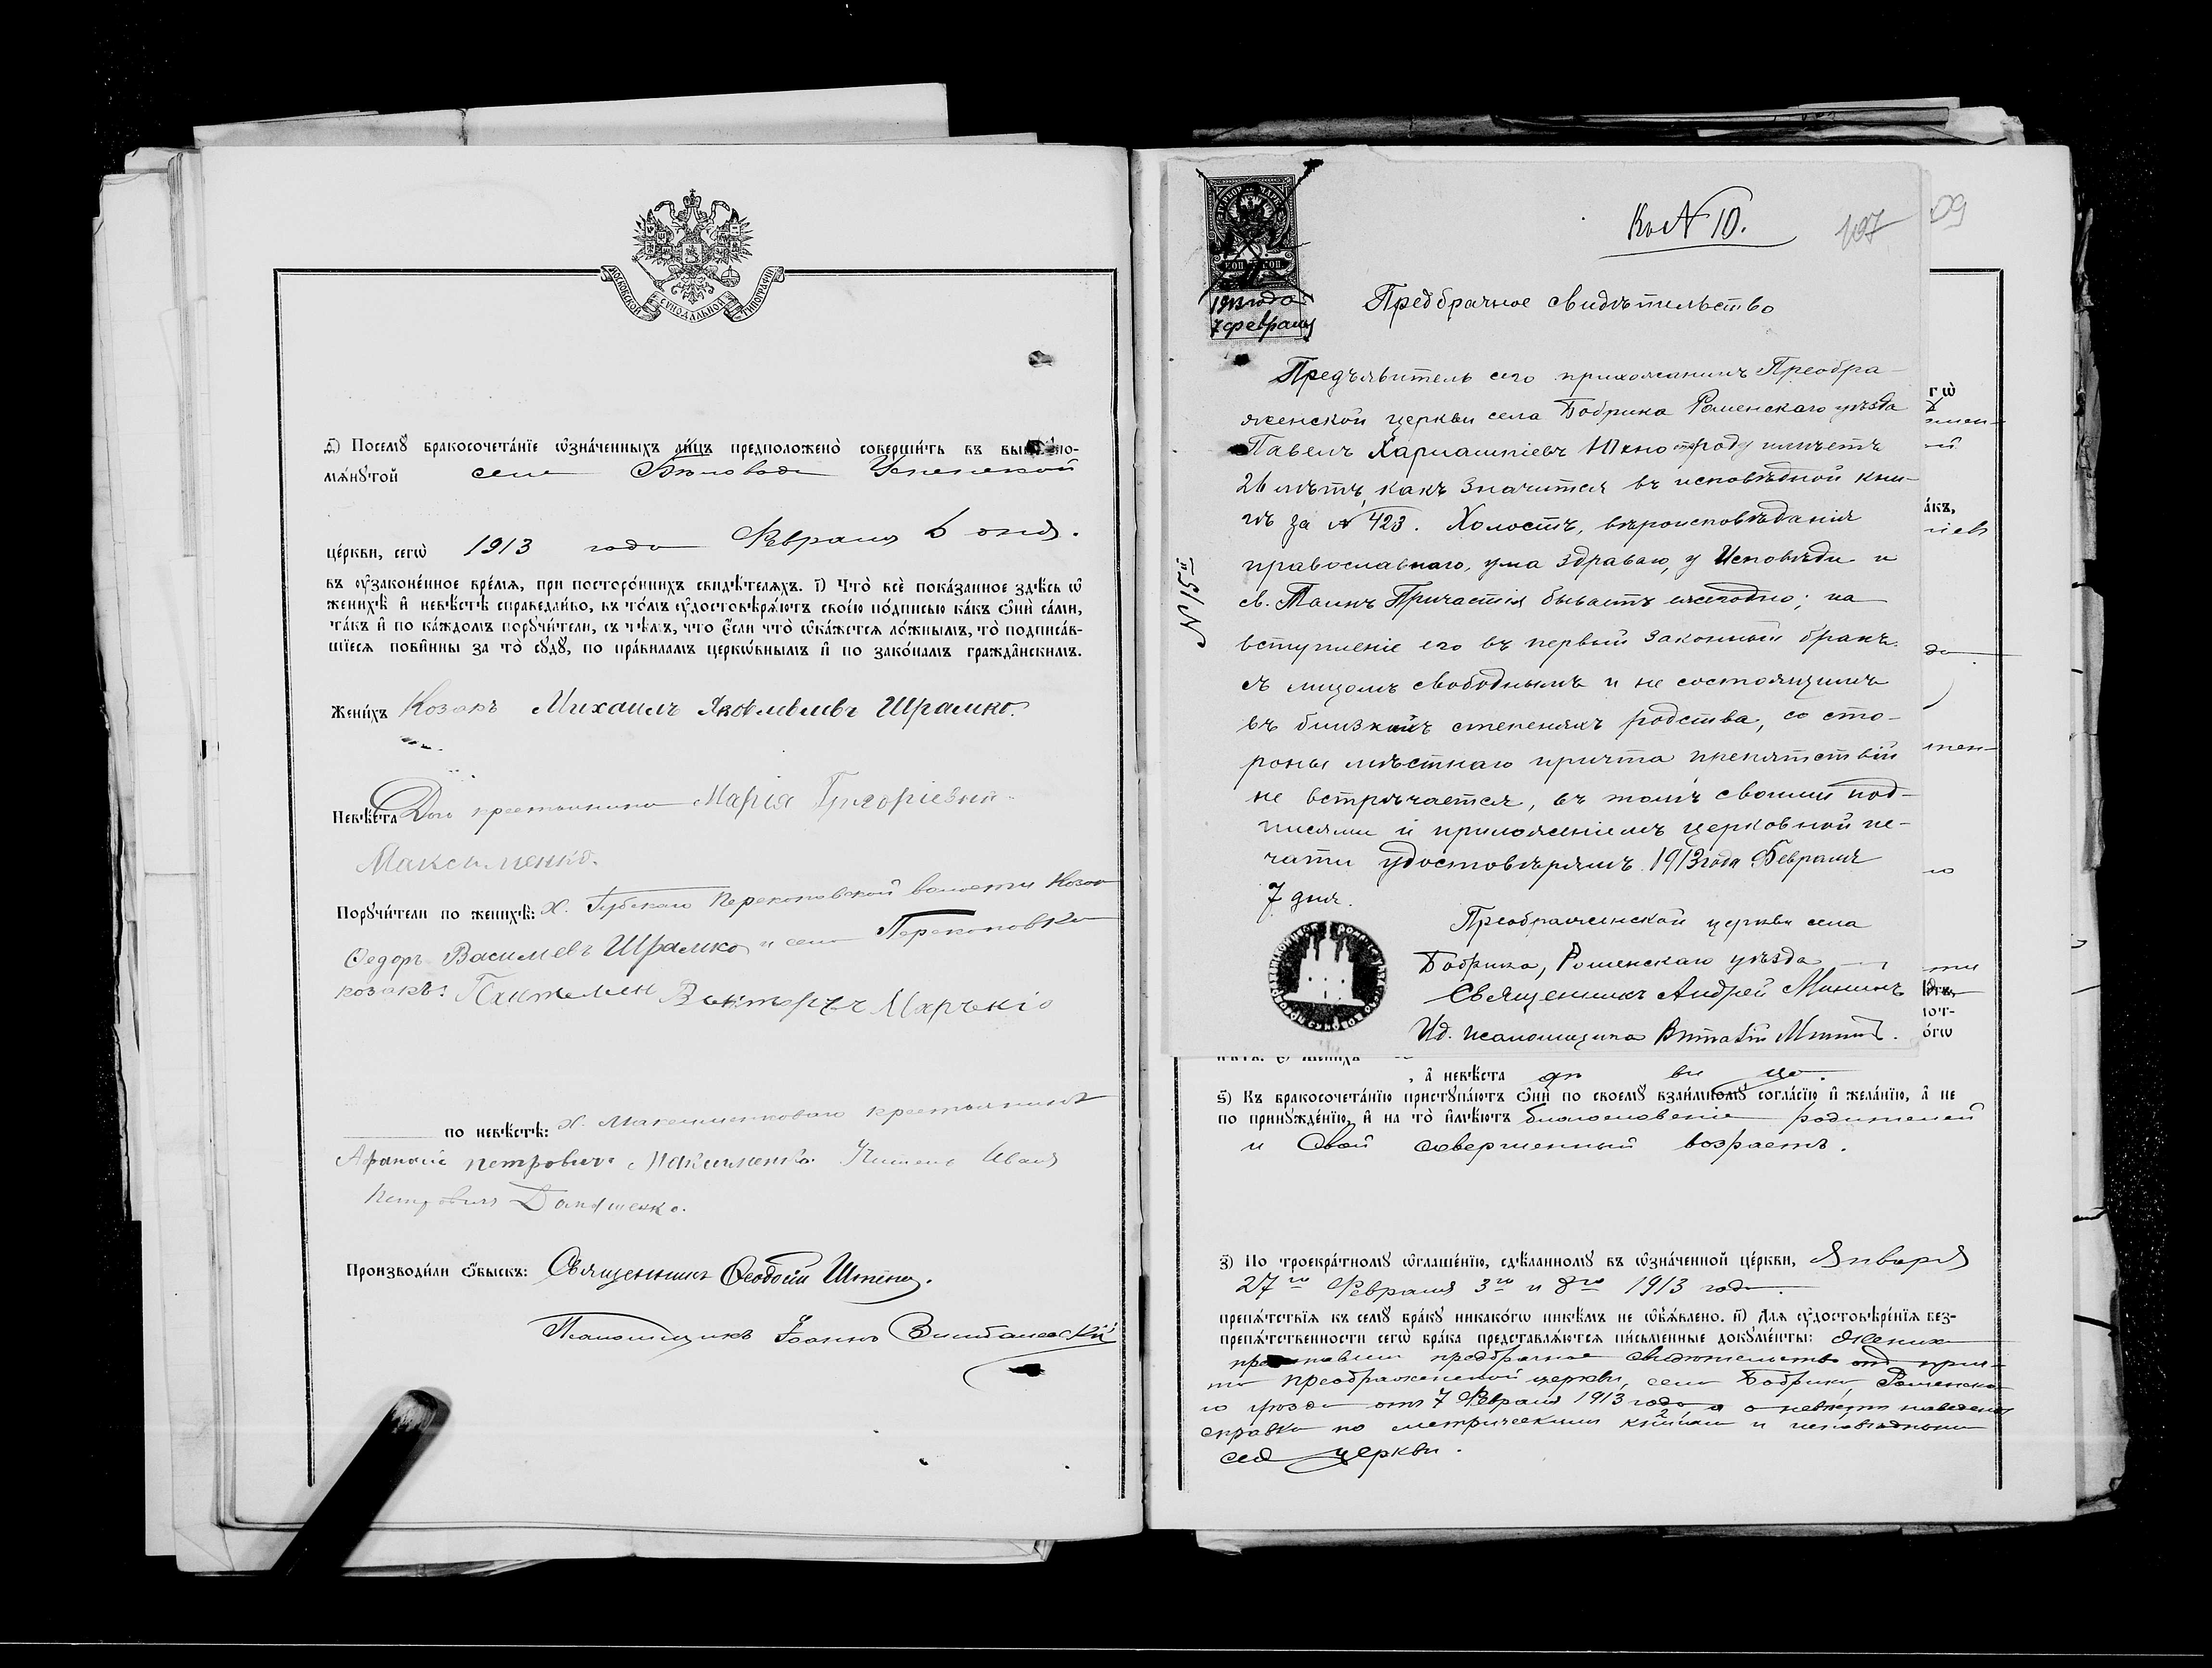 МОСКОВСКОЙ СѴНОДАЛЬНОЙ ТИПОГРАФІИ
Посемꙋ̀ бракосочета́нїе ѡ҆зна́ченныхъ ли́цъ предположено̀ соверши́ть въ
мѧ́нꙋтой селе Успенской
це́ркви, сегѡ̀ 1913 года Февраля дня.
въ ᲂу҆зако́ненное вре́мѧ, при посторо́ннихъ свидѣ́телѧхъ. і҃) Что̀ всѐ пока́занное здѣ́сь ѡ҆
женихѣ̀ и҆ невѣ́стѣ справедли́во, въ то́мъ ᲂу҆достовѣрѧ́ютъ свое́ю по́дписью ка́къ ѻ҆нѝ са́ми,
та́къ и҆ по ка́ждомъ порꙋчи́тели, съ тѣ́мъ, что є҆́сли что̀ ѡ҆ка́жетсѧ ло́жнымъ, то̀ подписа́в-
шїесѧ пови́нны за то̀ сꙋдꙋ̀, по пра́виламъ церко́внымъ и҆ по зако́намъ гражда́нскимъ.
Жени́хъ Козакъ Михаилъ Яковлевъ Шрамко.
Невѣ́ста Дочь крестьянина Марія Григоріевна
Максименко.
Порꙋчи́тели по женихѣ̀: Х. Губскаго Перекоповской волости Козак
Федоръ Василіевъ Шрамко и села Перекоповка
козакъ: Пантелей
по невѣ́стѣ: Х. Максименковаго крестьянинъ
Афанасій Петровичъ Максименко. Иванъ
Петровичъ
Производи́ли ѻ҆́быскъ: Священникъ Феодосій
Псаломщикъ Іоаннъ
Ко № 10.
107
09
1913 года
7 февраля
№ 15
Предбрачное свидѣтельство
Предъявитель сего прихожанинъ Преобра-
женской церкви села Бобрика Роменскаго уѣзда
Павелъ Харлампіевъ отроду имѣетъ
26 лѣтъ, какъ значится въ исповѣдной кни-
гѣ за № 423. Холостъ, вѣроисповѣданія
православнаго, ума здраваго, у Исповѣди и
св. Таинъ Причастія бываетъ ежегодно; на
вступленіе его въ первый законный бракъ
съ лицомъ свободнымъ и не состоящимъ
въ близкихъ степеняхъ родства, со сто-
роны мѣстнаго причта препятствій
не встрѣчается, въ томъ своими под-
писями и приложеніемъ церковной пе-
чати удостовѣряемъ. 1913 года Февраля
7 дня.
Преображенской церкви села
Бобрика, Роменскаго уѣзда
Священникъ Андрей
Ид. псаломщика Виталій
, а҆ невѣ́ста дѣ ви ца.
ѕ҃) Къ бракосочета́нїю пристꙋпа́ютъ ѻ҆нѝ по своемꙋ̀ взаи́мномꙋ согла́сїю и҆ жела́нїю, а҆ не
по принꙋжде́нїю, и҆ на то̀ и҆мѣ́ютъ благословеніе родителей
и свой совершенный возрастъ.
з҃) По троекра́тномꙋ ѡ҆глаше́нїю, сдѣ́ланномꙋ въ ѡ҆зна́ченной це́ркви, Января
27го Февраля 3го и 1913 года.
препѧ́тствїѧ къ семꙋ̀ бра́кꙋ никако́гѡ никѣ́мъ не ѡ҆б̾ѧ́влено. и҃) Длѧ ᲂу҆достовѣре́нїѧ без-
препѧ́тственности сегѡ̀ бра́ка представлѧ́ютсѧ пи́сьменные докꙋме́нты: Жених
предбрачное свидѣтельство от прич-
та Преображенской церкви, села Бобрика, Роменска-
го уѣзда отъ 7 Февраля 1913 года, а о невѣстѣ наведена
справка по метрическимъ книгам и исповѣдным
сея церкви.